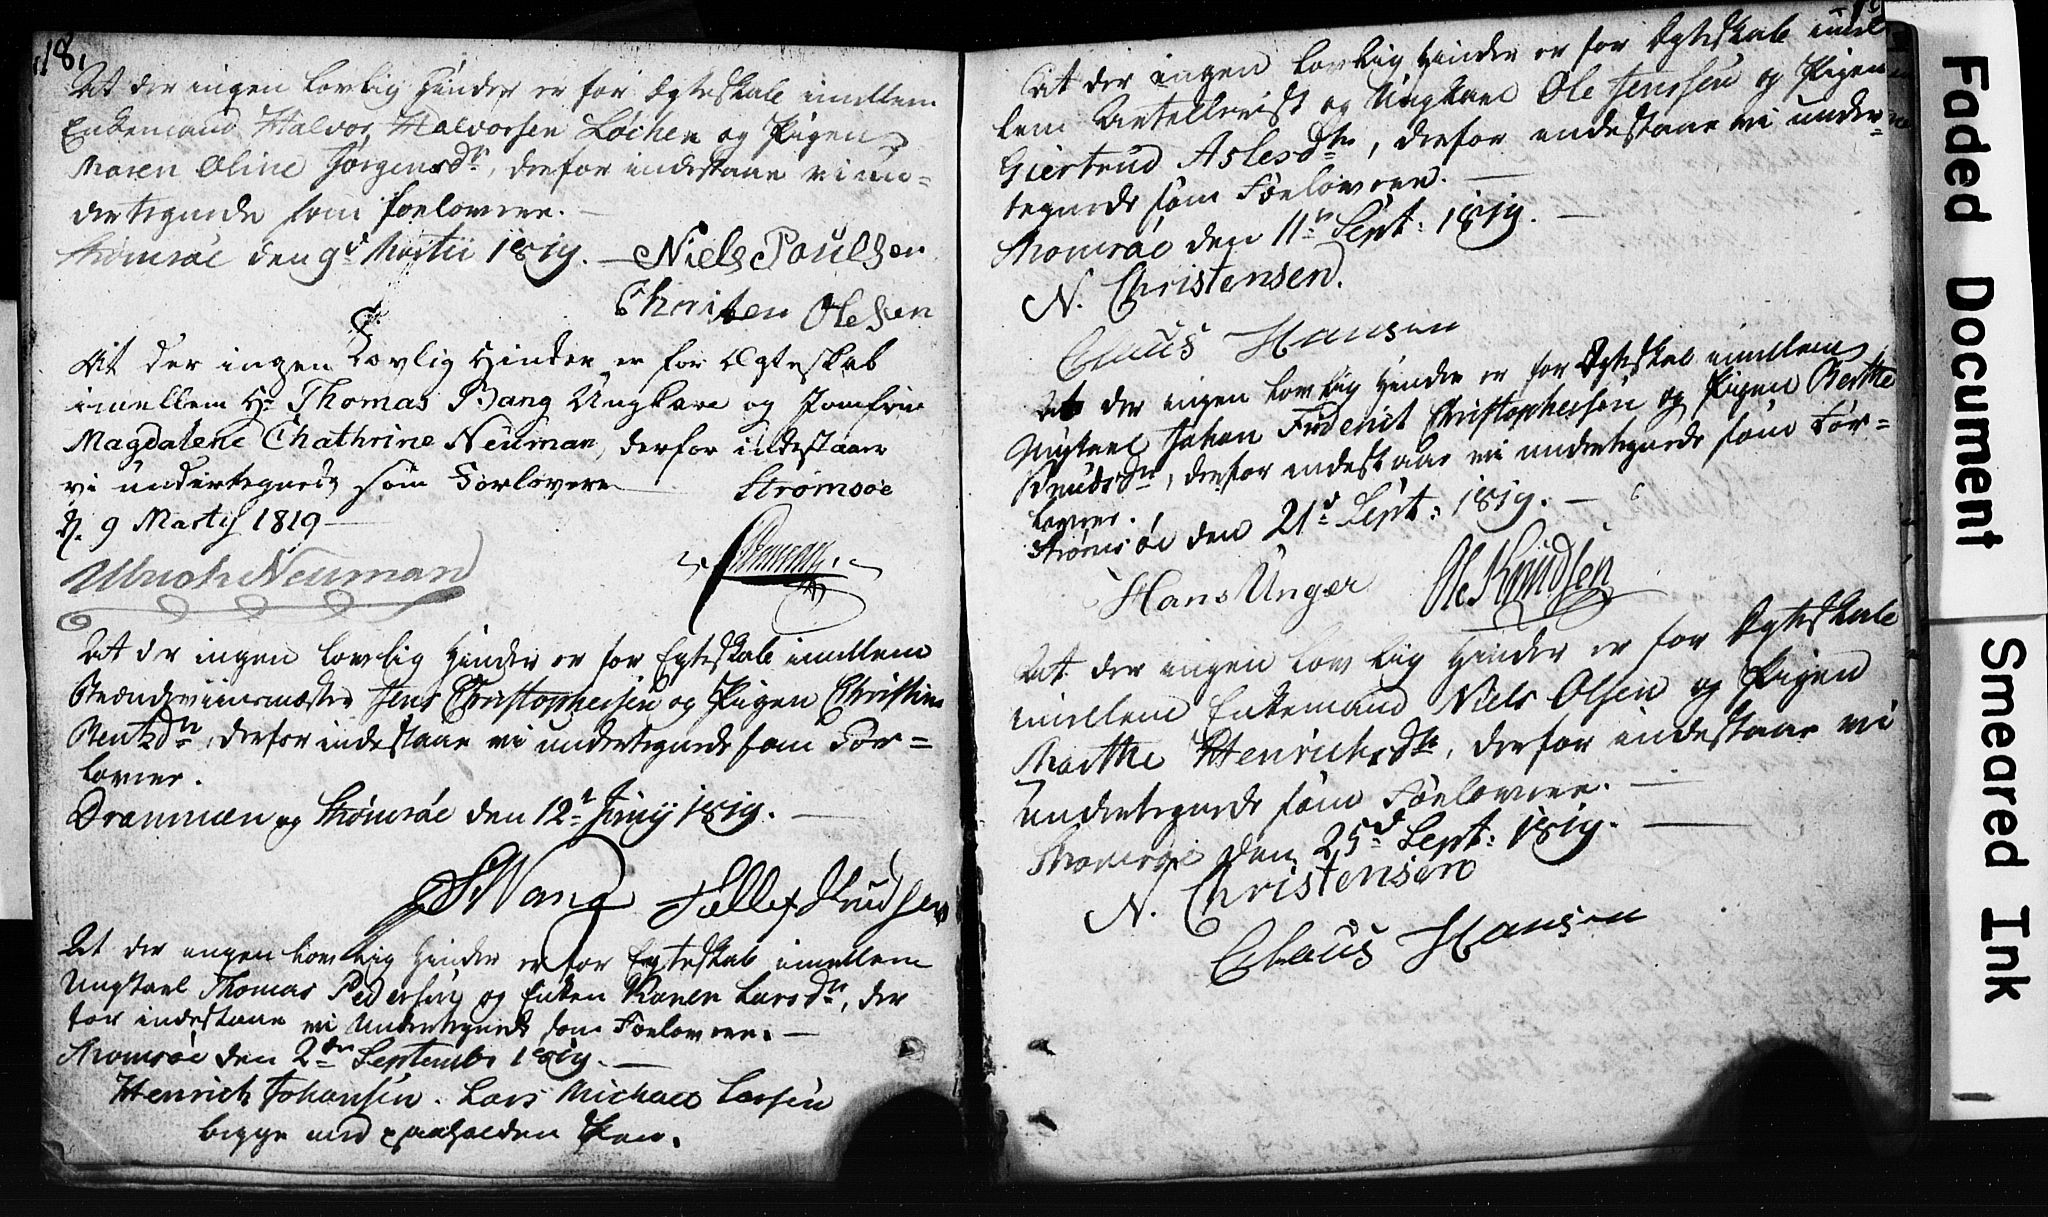 18.
At der ingen lovlig Hinder er for Egteskab imellem
Enkemand Halvor Halvorsen Løchen og Pigen
Maren Oline Jørgensdr, derfor indestaae vi un=
dertegnede som Forlovere.
Strømsøe den 9d Martii 1819. — Niels Poulsen
Christen Olesen
At der ingen Lovlig Hinder er for Ægteskab
imellem Hr Thomas Bang Ungkarl og Jomfrue
Magdalene Chathrine Neuman, derfor indestaaer
vi undertegnede som Forlovere Strømsøe
d. 9 Martij 1819
Ulrich Neuman
At der ingen lovlig Hinder er for Egteskab imellem
Brændeviinsmester Jens Christophersen og Pigen Christine
Bentzdtr, derfor indestaae vi undertegnede som For=
lovere.
Drammen og Strømsøe den 12te Junij 1819.
Wang Tellef Knudsen
At der ingen lovlig Hinder er for Egteskab imellem
Ungkarl Thomas Pedersen og Enken Karen Larsdtr, der
for indestaae vi undertegnede som Forlovere. —
Strømsøe den 2den September 1819. —
Henrich Johansen. Lars Michael Larsen
begge med paaholden Pen.
At der ingen lovlig Hinder er for Egteskab imel
lem Artellerist og Ungkarl Ole Jenssen og Pigen
Giertrud Aslesdtr, derfor indestaae vi under=
tegnede som Forlovere. —
Strømsøe den 11te Sept: 1819. —
N. Christensen.
Claus Hansen
At der ingen lovlig Hinder er for Egteskab imellem
Ungkarl Johan Friderich Christophersen og Pigen Berthe
Knudsdtr, derfor indestaae vi undertegnede som For=
lovere.
Strømsøe den 21d Sept: 1819. —
Hans Unger Ole Knudsen
At der ingen lovlig Hinder er for Egteskab
imellem Enkemand Niels Olsen og Pigen
Marthe Henrichsdtr, derfor indestaae vi
undertegnede som Forlovere. —
Strømsøe den 25d Sept: 1819. —
N. Christensen
Claus Hansen
Faded Document
Smeared Ink